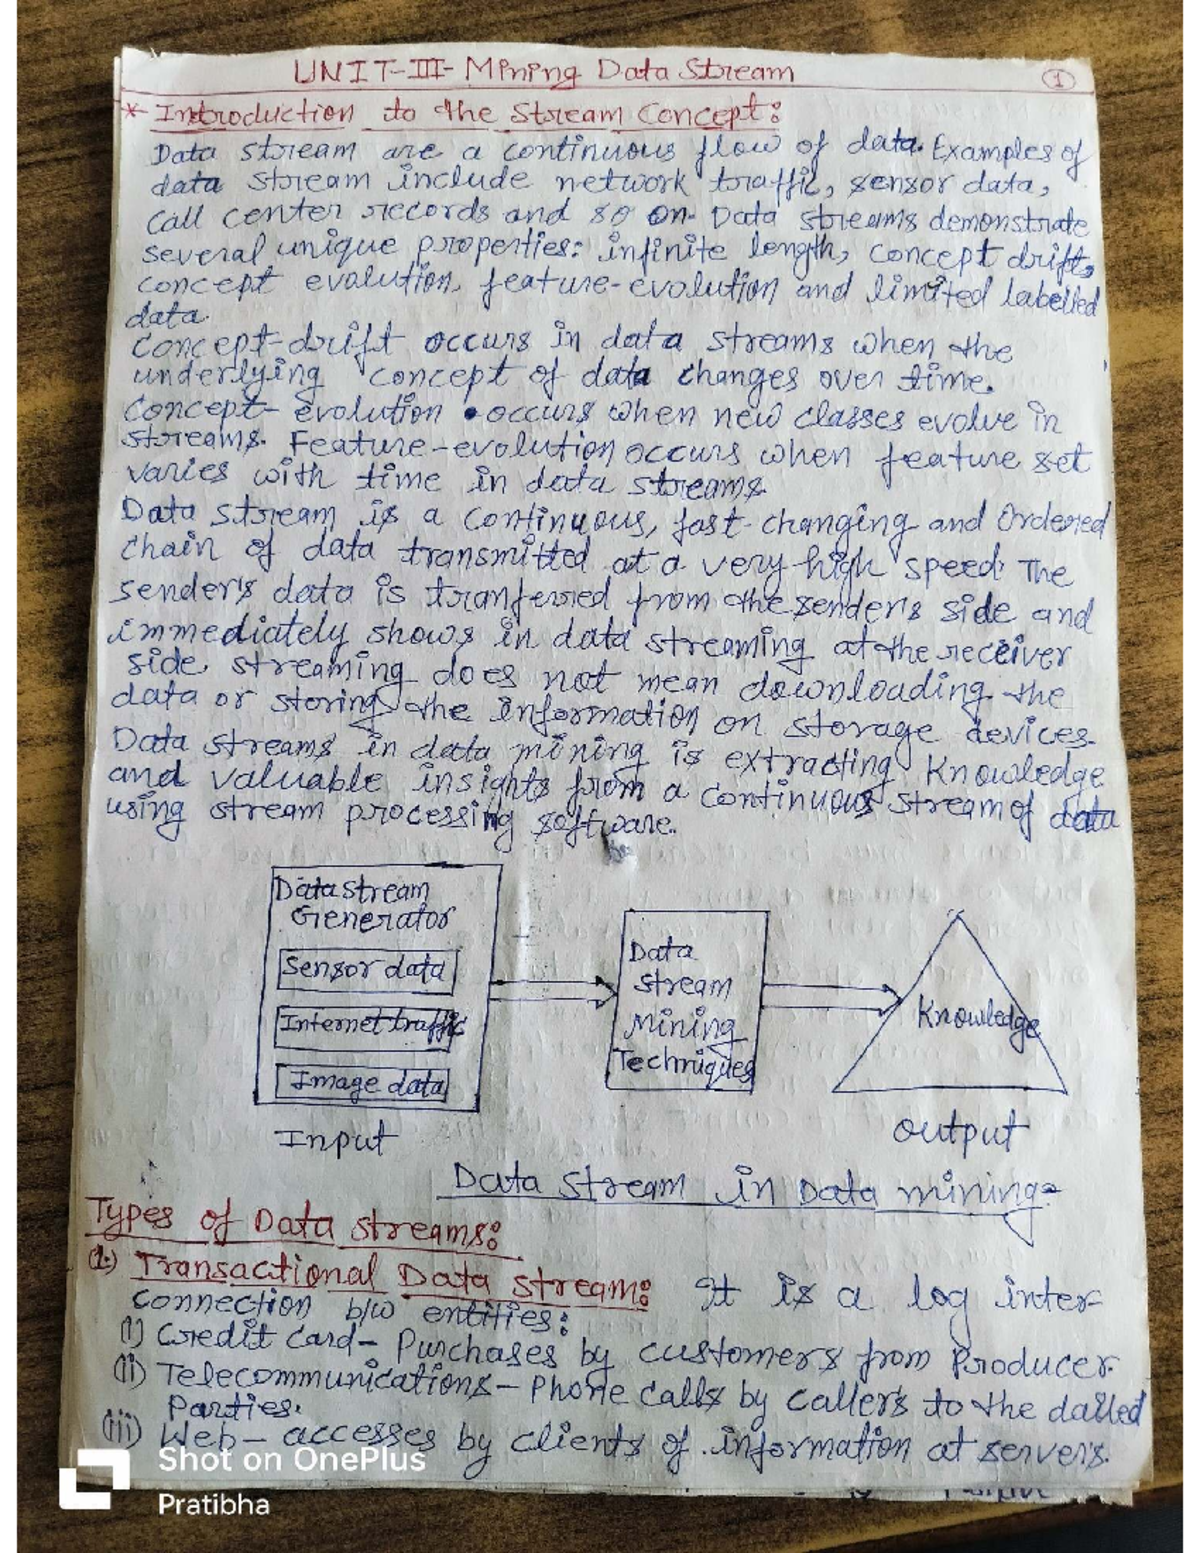 UNIT-III- Mining Data Stream
1
* Introduction to the Stream Concept:
Data stream are a continuous flow of data. Examples of
data stream include network traffic, sensor data,
call center records and so on. Data streams demonstrate
several unique properties: infinite length, concept drift,
concept evolution, feature-evolution and limited labelled
data.
Concept-drift occurs in data streams when the
underlying concept of data changes over time.
Concept-evolution occurs when new classes evolve in
streams. Feature-evolution occurs when feature set
varies with time in data streams.
Data stream is a continuous, fast-changing and Ordered
chain of data transmitted at a very high speed. The
sender's data is tranferred from the sender's side and
immediately shows in data streaming at the receiver
side. streaming does not mean downloading the
data or storing the information on storage devices.
Data streams in data mining is extracting Knowledge
and valuable insights from a continuous stream of data
using stream processing software.
Data stream
Generator
Sensor data
Internet traffic
Image data
Input
Data
stream
Mining
Techniques
Knowledge
output
Data Stream in Data mining
Types of Data streams:
(1.) Transactional Data stream: It is a log inter-
connection b/w entities:
(i) Credit Card- Purchases by customers from Producer.
(ii) Telecommunications- Phone calls by callers to the dailed
Parties.
(iii) Web- accesses by clients of information at servers.
Shot on OnePlus
Pratibha